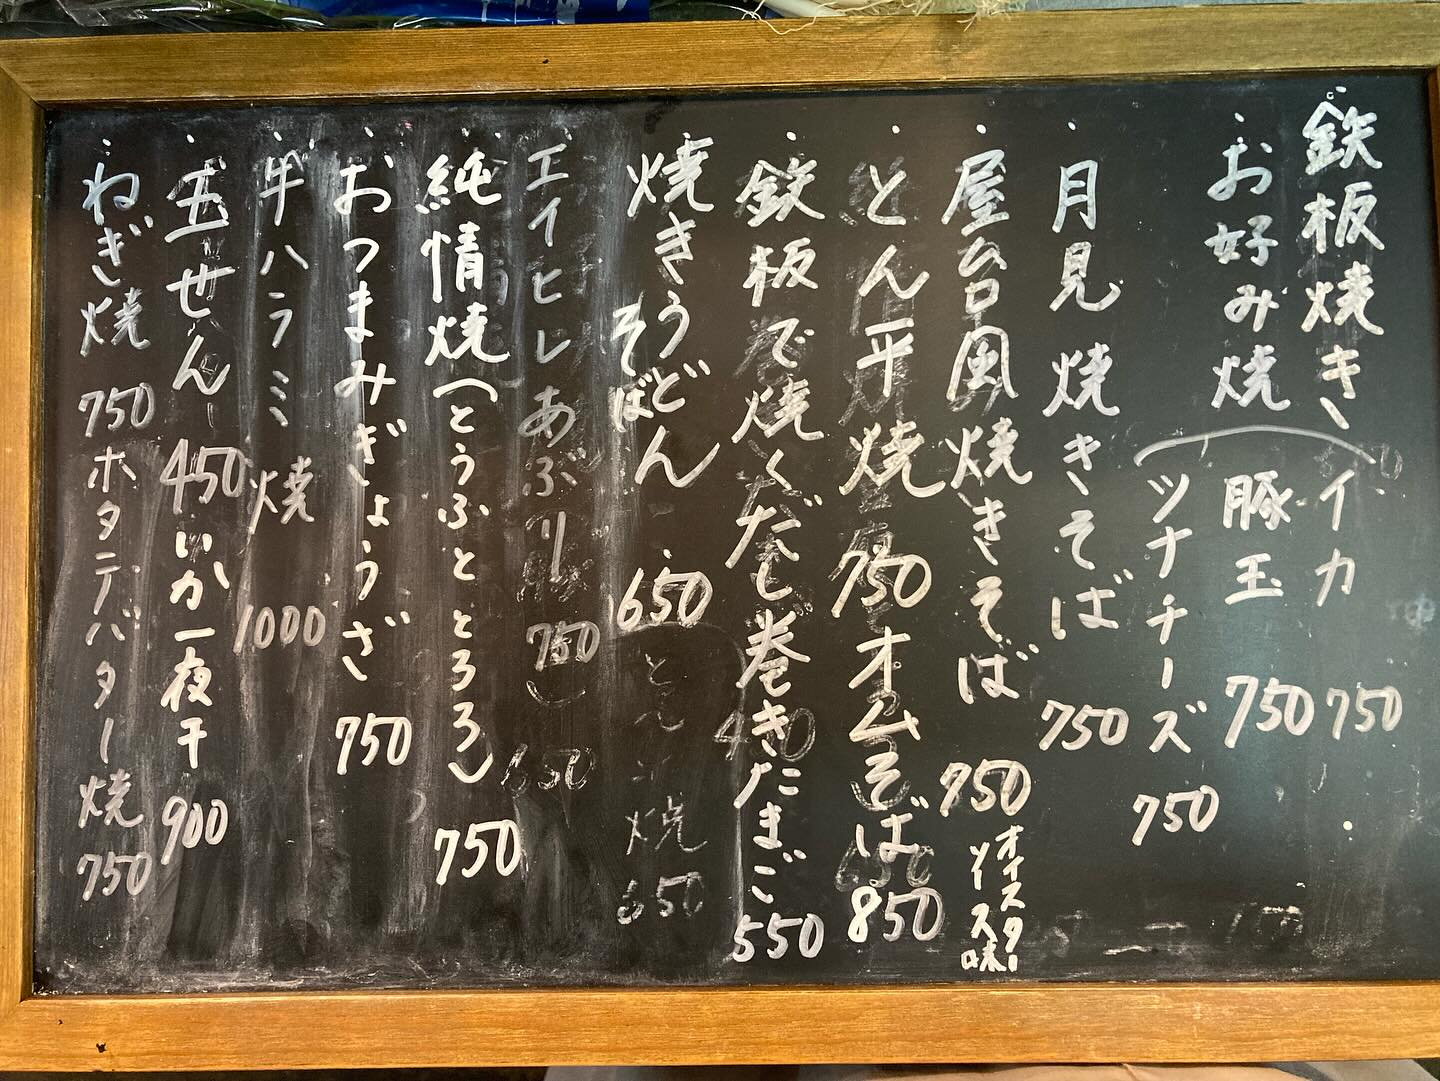 鉄板焼き、
お好み焼
イカ 750
豚玉 750
ツナチーズ 750
月見焼きそば 750
屋台風焼きそば 750
オイスター
ソース味
とん平焼 750
オムそば 850
鉄板で焼くだし巻きたまご 550
焼きうどん 650
そばん
とん平焼 650
エイヒレあぶり 750
650
純情焼(とうふととろろ) 750
おつまみぎょうざ 750
牛ハラミ焼 1000
玉せん 450
いか一夜干 900
ねぎ焼 750
ホタテバター焼 750